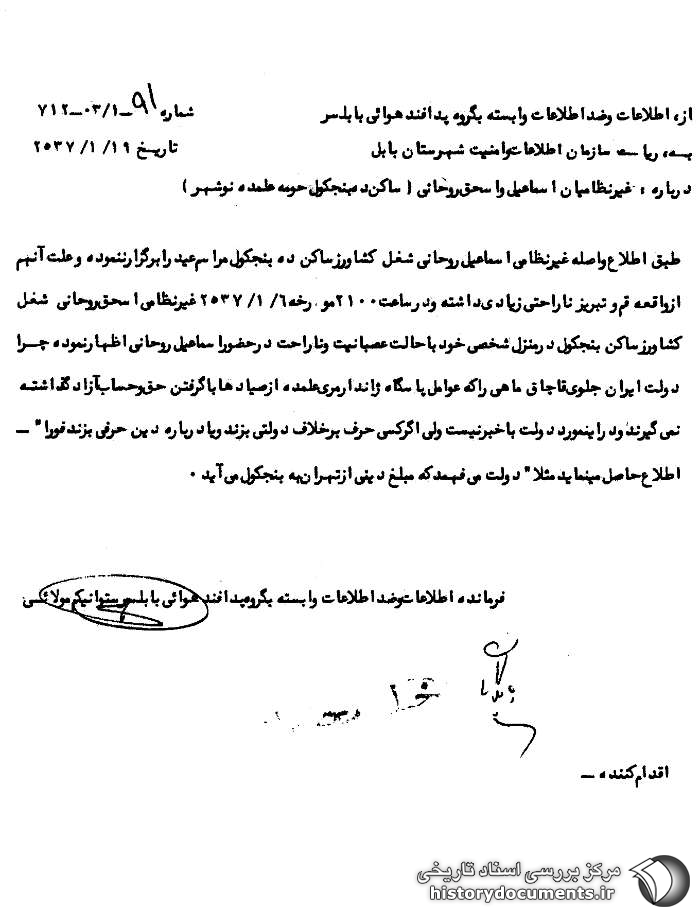 از، اطلاعات وضد اطلاعات وابسته بگروه پدافند هوائی بابلسر شماره ۹۱_۰۳/۱_۷۱۲
به، ریاست سازمان اطلاعات وامنیت شهرستان بابل تاریخ ۱۹/ ۱/ ۲۵۳۷
درباره : غیرنظامیان اسماعیل واسحق روحانی ( ساکن ده بنجکول حومه علمده نوشهر )
طبق اطلاع واصله غیرنظامی اسماعیل روحانی شغل کشاورز ساکن ده بنجکول مراسم عید را برگزار ننموده و علت آنهم
از واقعه قم و تبریز ناراحتی زیادی داشته ودر ساعت ۲۱۰۰ مورخه ۶/ ۱/ ۲۵۳۷ غیرنظامی اسحق روحانی شغل
کشاورز ساکن بنجکول در منزل شخصی خود با حالت عصبانیت وناراحت در حضور اسماعیل روحانی اظهار نموده چرا
دولت ایران جلوی قاچاق ماهی را که عوامل پاسگاه ژاندارمری علمده از صیادها با گرفتن حق وحساب آزاد گذاشته
نمی گیرند ودر اینمورد دولت با خبر نیست ولی اگر کسی حرف بر خلاف دولتی بزند ویا درباره دین حرفی بزند فورا" _
اطلاع حاصل مینماید مثلا" دولت می فهمد که مبلغ دینی از تهران به بنجکول می آید .
فرمانده اطلاعات وضد اطلاعات وابسته بگروه پدافند هوائی بابلسر ستوانیکم مولائی
اقدام کننده _
مرکز بررسی اسناد تاریخی
historydocuments.ir